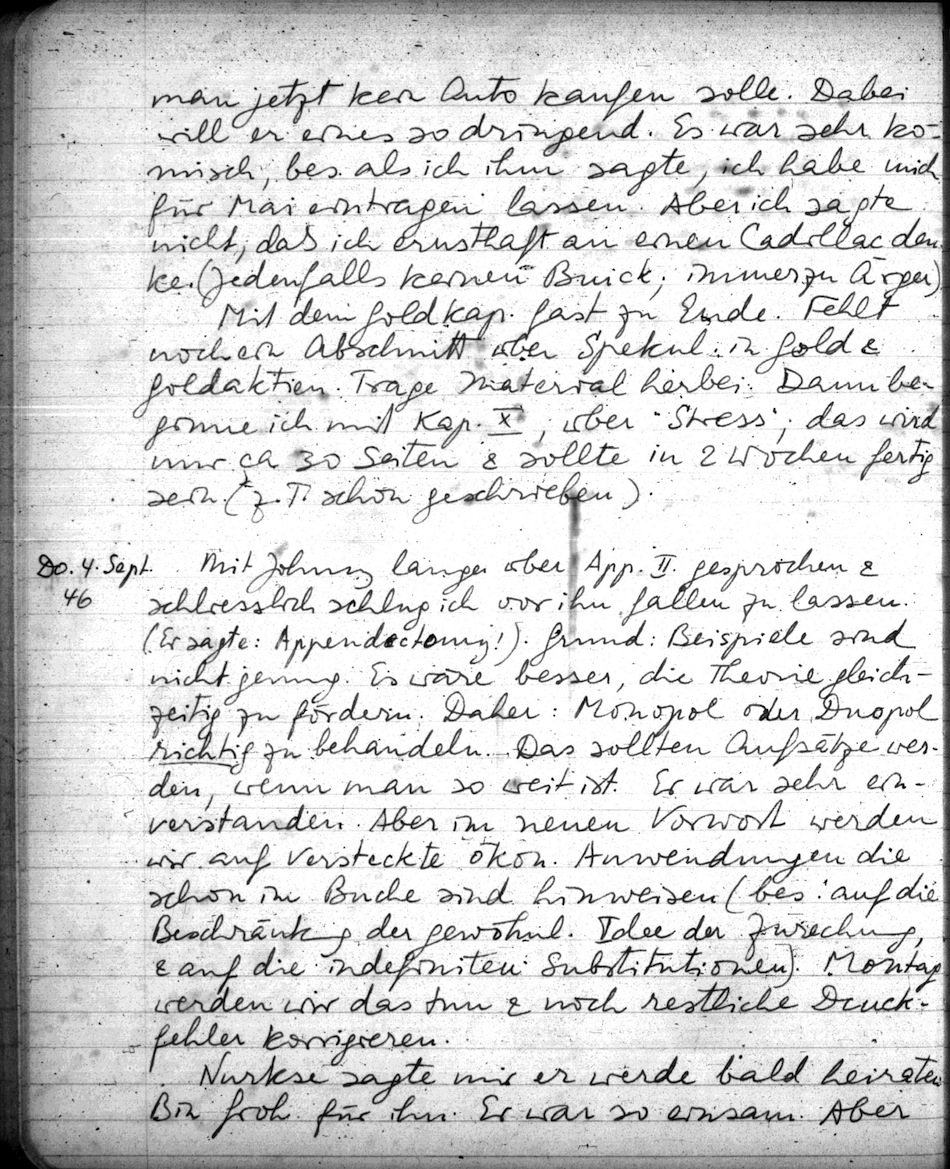 man jetzt kein Auto kaufen solle. Dabei
will er eines so dringend. Es war sehr ko-
misch, bes. als ich ihm sagte, ich habe mich
für Mai eintragen lassen. Aber ich sagte
nicht, daß ich ernsthaft an einen Cadillac den-
ke. (Jedenfalls keinen Buick; immerzu Ärger)
Mit dem Goldkap. fast zu Ende. Fehlt
noch ein Abschnitt über Spekul. in Gold &
Goldaktien. Trage Material herbei. Dann be-
ginne ich mit Kap. X, über "Stress"; das wird
nur ca 30 Seiten & sollte in 2 Wochen fertig
sein (z.T. schon geschrieben).
Do. 4. Sept. Mit Johnny länger über App. II. gesprochen &
46 schliesslich schlug ich vor ihn fallen zu lassen.
(Er sagte: Appendectomy!). Grund: Beispiele sind
nicht genug. Es wäre besser, die Theorie gleich-
zeitig zu fördern. Daher: Monopol oder Duopol
richtig zu behandeln. Das sollten Aufsätze wer-
den, wenn man so weit ist. Er war sehr ein-
verstanden. Aber im neuen Vorwort werden
wir auf versteckte ökon. Anwendungen die
schon im Buche sind hinweisen (bes. auf die
Beschränkg der gewöhnl. Idee der Zurechnung,
& auf die indefiniten Substitutionen). Montag
werden wir das tun & noch restliche Druck-
fehler korrigieren.
Nurkse sagte mir er werde bald heiraten
Bin froh für ihn. Er war so einsam. Aber